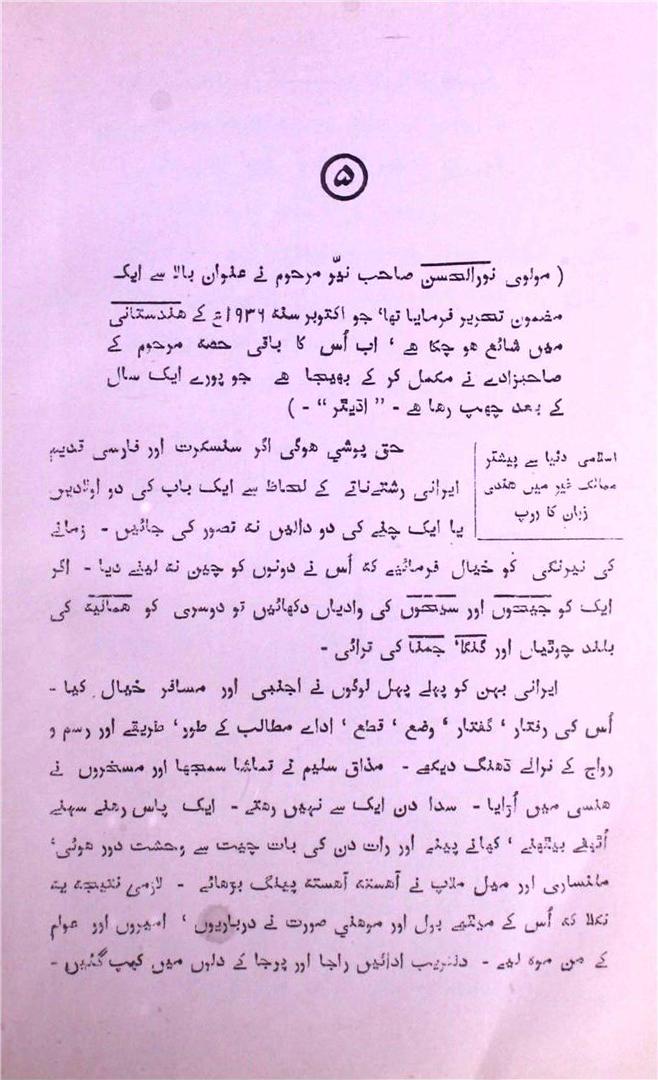 ۵
( مولوی نورالحسن صاحب نیّر مرحوم نے عنوان بالا سے ایک
مضمون تحریر فرمایا تھا، جو اکتوبر سنہ ۱۹۳۶ع کے ہندستانی
میں شائع ہو چکا ہے ، اب اُس کا باقی حصہ مرحوم کے
صاحبزادے نے مکمل کر کے بھیجا ہے جو پورے ایک سال
کے بعد چھپ رہا ہے - ” اڈیٹر “ - )
اسلامی دنیا سے پیشتر
ممالک غیر میں ہندی
زبان کا روپ
حق پوشی ہوگی اگر سنسکرت اور فارسی قدیم
ایرانی رشتے‌ناتے کے لحاظ سے ایک باپ کی دو اولادیں
یا ایک چنے کی دو دالیں نہ تصور کی جائیں - زمانے
کی نیرنگی کو خیال فرمائیے کہ اُس نے دونوں کو چین نہ لینے دیا - اگر
ایک کو جیحوں اور سیحوں کی وادیاں دکھائیں تو دوسری کو ہمالیہ کی
بلند چوٹیاں اور گنگا، جمنا کی ترائی -
ایرانی بہن کو پہلے پہل لوگوں نے اجنبی اور مسافر خیال کیا -
اُس کی رفتار ، گفتار ، وضع ، قطع ، اداے مطالب کے طور، طریقے اور رسم و
رواج کے نرالے ڈھنگ دیکھے - مذاق سلیم نے تماشا سمجھا اور مسخروں نے
ہنسی میں اُڑایا - سدا دن ایک سے نہیں رہتے - ایک پاس رہنے سہنے
اُٹھنے بیٹھنے ، کھانے پینے اور رات دن کی بات چیت سے وحشت دور ہوئی،
ملنساری اور میل ملاپ نے آہستہ آہستہ پینگ بڑھائے - لازمی نتیجہ یہ
نکلا کہ اُس کے میٹھے بول اور موھنی صورت نے درباریوں ، امیروں اور عوام
کے من موہ لیے - دلفریب ادائیں راجا اور پرجا کے دلوں میں کھپ گئیں -